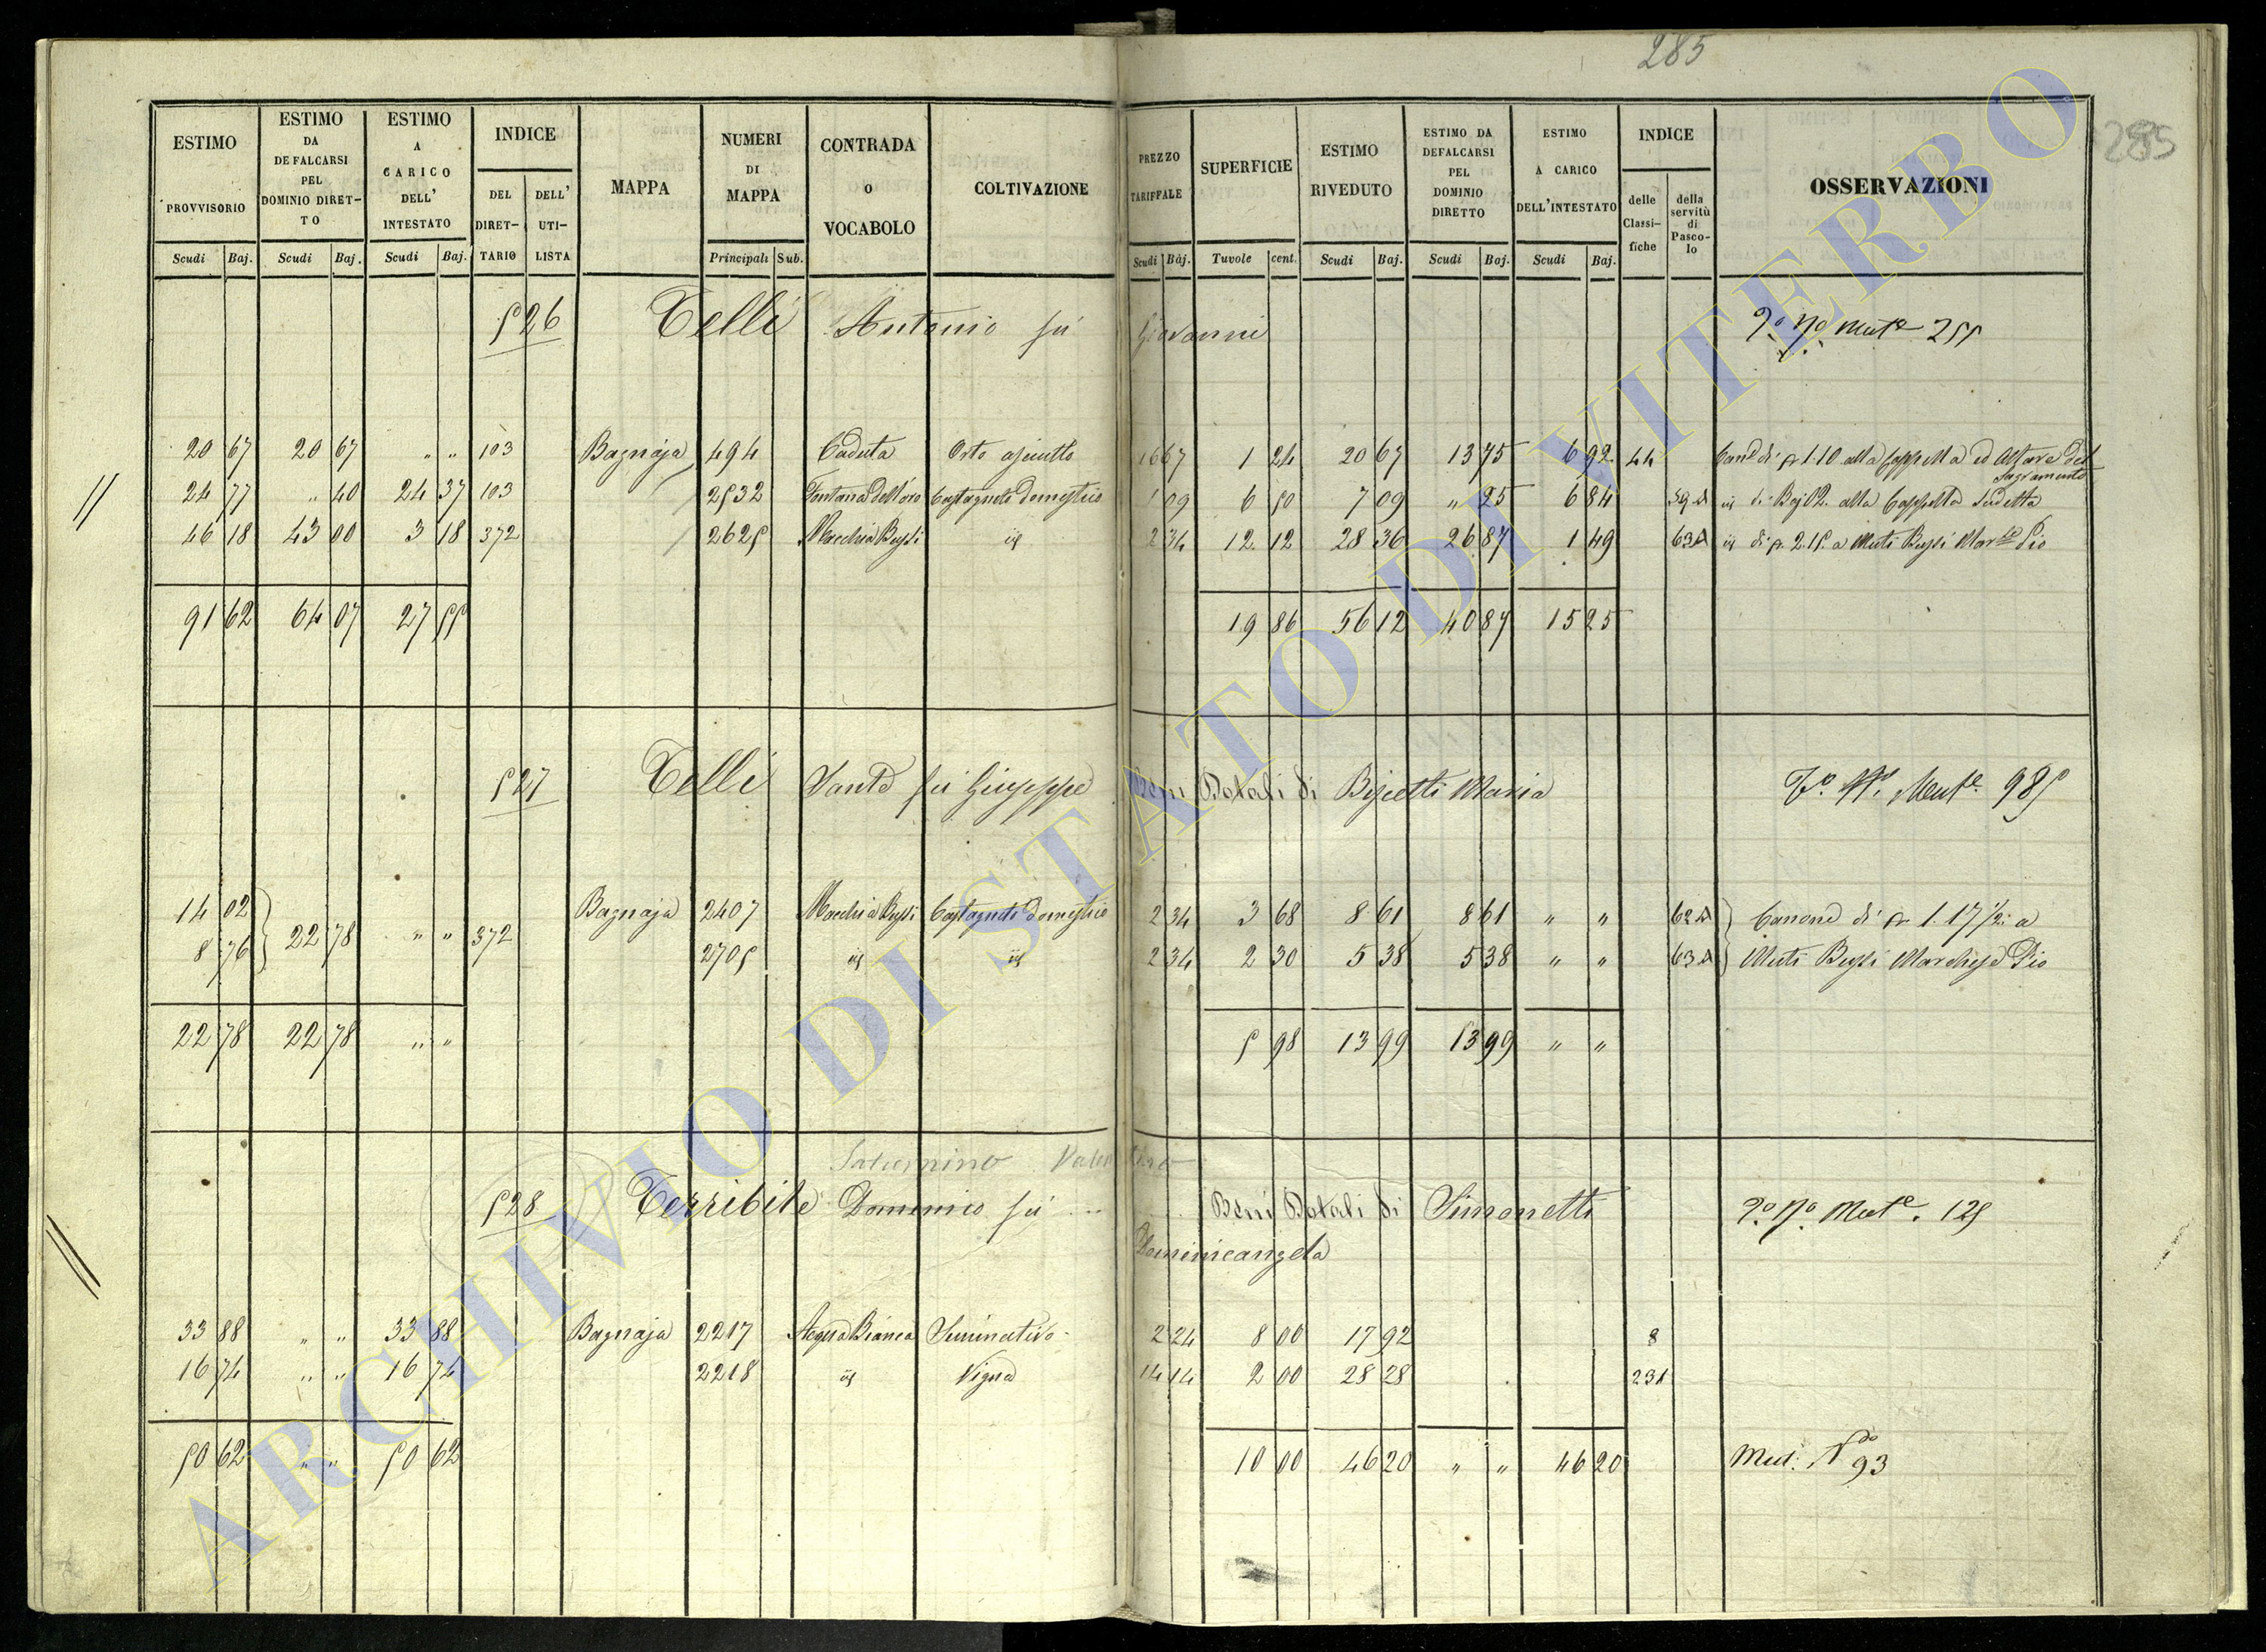 285
285
ESTIMO PROVVISORIO Scudi Baj.
ESTIMO DA DEFALCARSI PEL DOMINIO DIRET- TO Scudi Baj.
ESTIMO A CARICO DELL' INTESTATO Scudi Baj.
INDICE DEL DIRET- TARIO DELL' UTI- LISTA
MAPPA
NUMERI DI MAPPA Principali Sub.
CONTRADA o VOCABOLO
COLTIVAZIONE
PREZZO TARIFFALE Scudi Baj.
SUPERFICIE Tavole cent.
ESTIMO RIVEDUTO Scudi Baj.
ESTIMO DA DEFALCARSI PEL DOMINIO DIRETTO Scudi Baj.
ESTIMO A CARICO DELL'INTESTATO Scudi Baj.
INDICE delle Classi- fiche della servitù di Pasco- lo
OSSERVAZIONI
526 Telli Antonio fu Giovanni Mut.e 255
20 67 20 67 " " 103 Bagnaja 494 Caduta Orto asciutto 16 67 1 24 20 67 13 75 6 92 44 Can.e di 1.10 alla Cappella ed Altare del Sagramento
24 77 " 40 24 37 103 2532 Fontana dell'oro Castagneto domestico 1 09 6 50 7 09 " 25 6 84 59 id di Baj 02. alla Cappella sudetta
46 18 43 00 3 18 372 2625 Macchia Bussi id 2 34 12 12 28 36 26 87 1 49 63 id di 2.15. a Muti Bussi March.e Pio
91 62 64 07 27 55 19 86 56 12 40 87 15 25
527 Telli Sante fu Giuseppe Beni Dotali di Bisetti Maria Mut.e 985
14 02 22 78 " " 372 Bagnaja 2407 Macchia Bussi Castagneto domestico 2 34 3 68 8 61 8 61 " " 62 Canone di 1.17 1/2 a
8 76 2705 id id 2 34 2 30 5 38 5 38 " " 63 Muti Bussi Marchese Pio
22 78 22 78 " " 5 98 13 99 13 99 " "
Saturnino Valentino
528 Terribile Domenico fu ... Beni Dotali di Simonetti Mut.e 125
Domenicangela
33 88 " " 33 88 Bagnaja 2217 Acqua Bianca Seminativo 2 24 8 00 17 92 8
16 74 " " 16 74 2218 id Vigna 14 14 2 00 28 28 231
50 62 " " 50 62 10 00 46 20 " " 46 20 Mut. N 93
ARCHIVIO DI STATO DI VITERBO